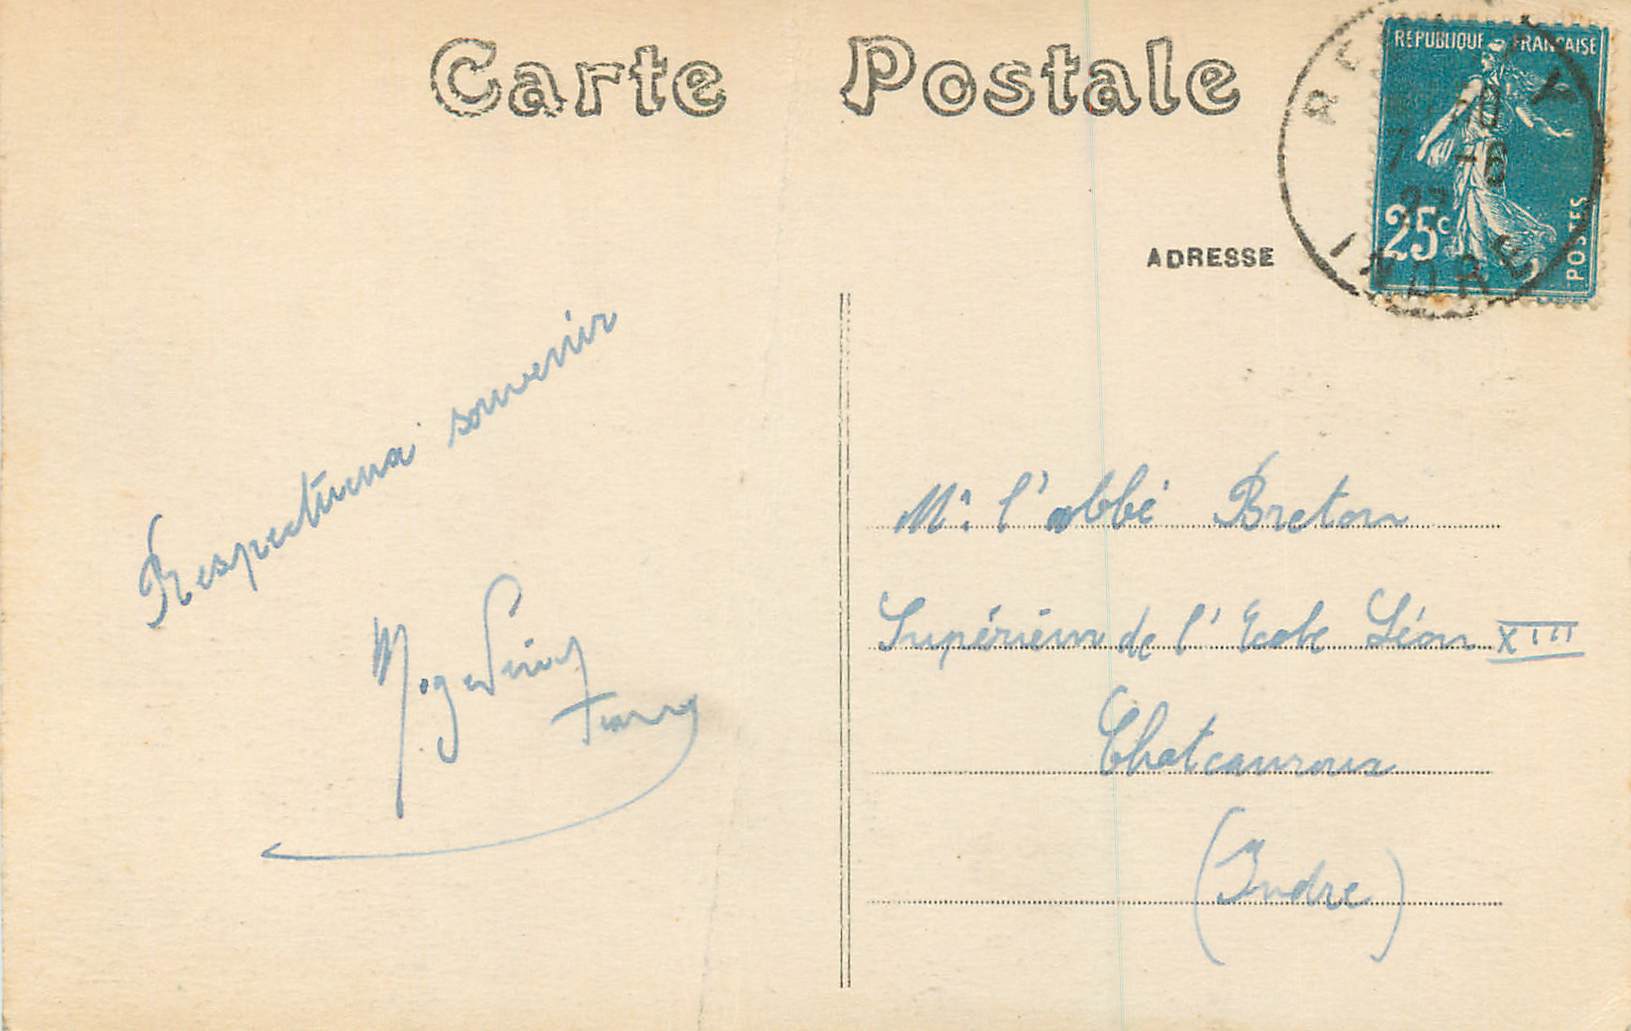 Carte Postale
REPUBLIQUE FRANÇAISE
25c
POSTES
INDRE
ADRESSE
Respectueux souvenir
Mr l'abbé Breton
Supérieur de l'Ecole Léon XIII
Chateauroux
(Indre)